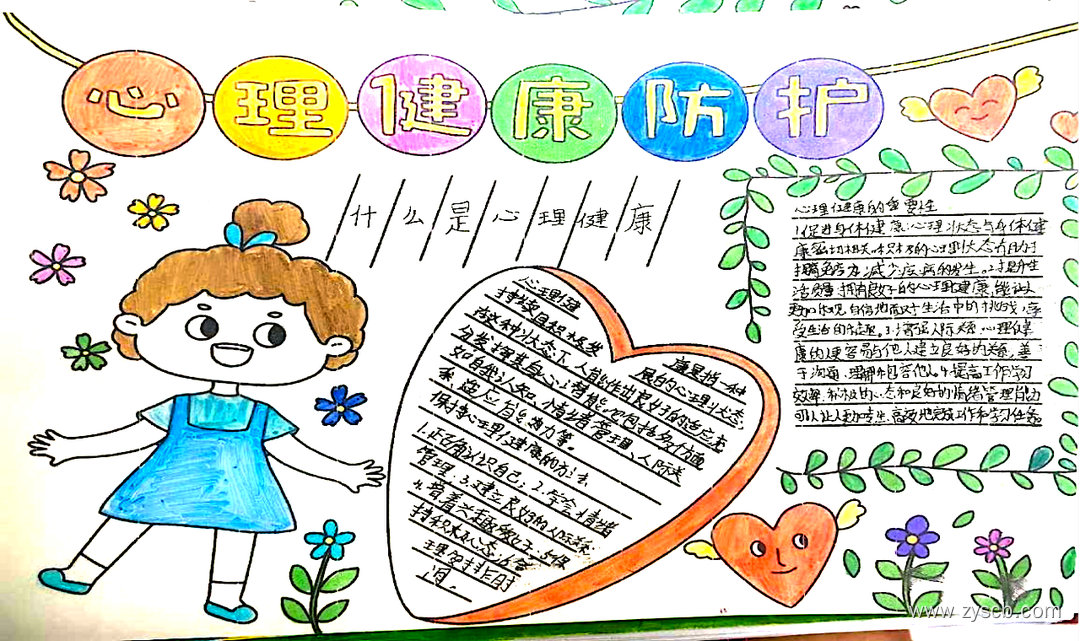 心理健康防护
什么是心理健康
心理健
康是指一种
持续且积极发
展的心理状态
在这种状态下,人能作出良好的适应,
分发挥其身心潜能。它包括多个方面
如自我认知、情绪管理、人际关
系、适应能力等。
保持心理健康的方法
1.正确认识自己;2.学会情绪
管理;3.建立良好的人际关系
4.培养兴趣爱好;5.保
持积极心态;6.合
理安排时
间。
心理健康的重要性
1.促进身体健康:心理状态与身体健
康密切相关,积极的心理状态有助于
提高免疫力,减少疾病的发生。2.提升生
活质量:拥有良好的心理健康,能让人
更加乐观、自信地面对生活中的挑战,享
受生活的乐趣。3.增强人际关系:心理健
康的人更容易与他人建立良好的关系,善
于沟通、理解和包容他人。4.提高工作学习
效率:积极的心态和良好的情绪管理能力
可以让人更加专注、高效地完成工作和学习任务
www.zyscb.com